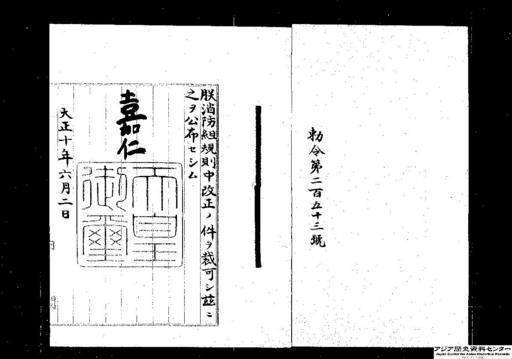 勅令第二百五十三號
朕消防組規則中改正ノ件ヲ裁可シ茲ニ
之ヲ公布セシム
嘉仁
天皇御璽
大正十年六月二日
アジア歴史資料センター
Japan Center for Asian Historical Records